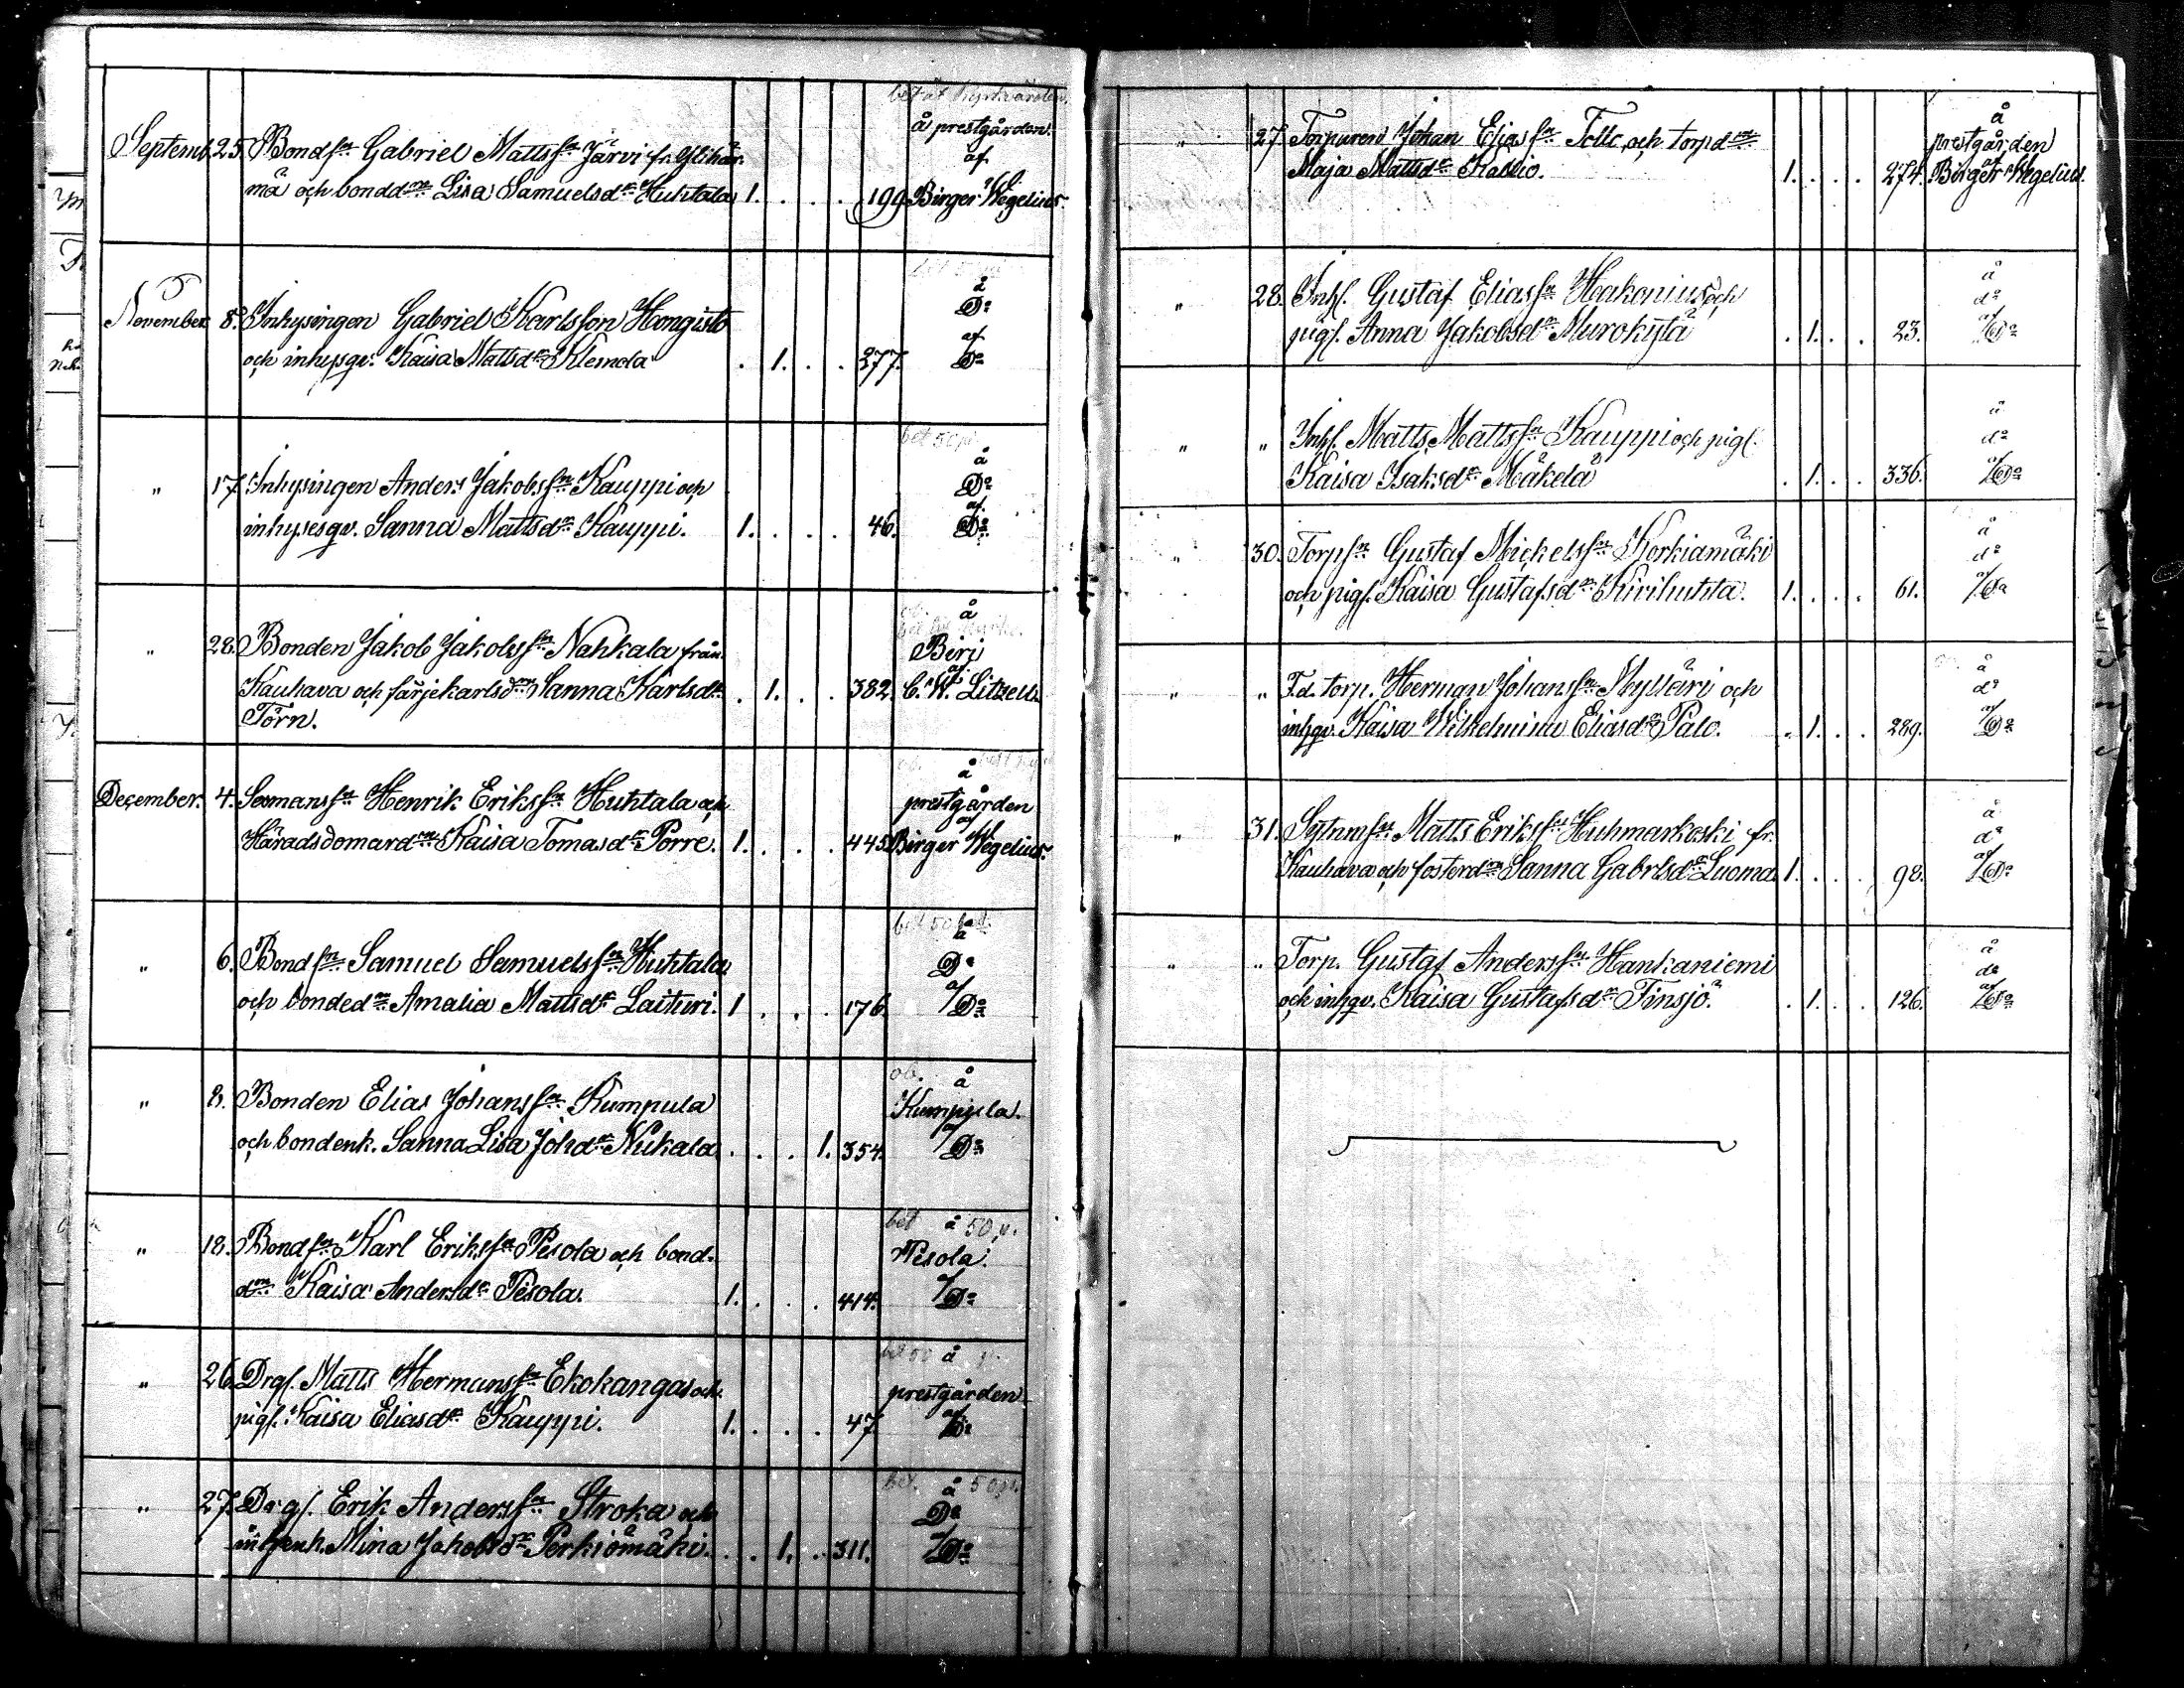 bet åt kyrkvärden.
Septemb. 25. Bondsn Gabriel Mattssn Järvi fr. Ylihär-
mä och bonddrn Lisa Samuelsdr Huhtala 1. . . . 199. å prestgården af Birger Wegelius.
November 8. Inhysingen Gabriel Karlsson Hongisto
och inhysgv. Kaisa Mattsdr Klemola . 1. . . 277. å Do af Do
bet 50 p.
" 17. Inhysingen Anders Jakobssn Kauppi och
inhysesgv. Sanna Mattsdr Kauppi. 1. . . . 46. å Do af Do
ob.
" 28. Bonden Jakob Jakobssn Nahkala från
Kauhava och färjekarlsdrn Sanna Karlsdr . 1. . . 382. å Birj af C. W. Litzell.
Törn.
ob.
December. 4. Sexmanssn Henrik Erikssn Huhtala och
Häradsdomardrn Kaisa Tomasdr Porre. 1. . . . 445. å prestgården af Birger Wegelius.
bet 50 p.
" 6. Bondsn Samuel Samuelssn Huhtala
och bondedrn Amalia Mattsdr Laituri. 1 . . . 176. å Do af Do
ob.
" 8. Bonden Elias Johanssn Kumpula
och bondenk. Sanna Lisa Johdr Nukala . . . 1. 354. å Kumpula. af Do
bet 50 p.
" 18. Bondsn Karl Erikssn Pesola och bond-
drn Kaisa Andersdr Pesola. 1. . . . 414. å Pesola. af Do
bet 50 p.
" 26. Drgl. Matts Hermanssn Ekokangas och
pigl. Kaisa Eliasdr Kauppi. 1. . . . 47. å prestgården. af Do
bet. 50 p.
" 27. Drgl. Erik Anderssn Stroka och
inhenk. Mina Jakobsdr Perkiömäki. . . 1. . 311. å Do af Do
" 27. Torparen Johan Eliassn Tollo och torpdrn
Maja Mattsdr Kallio. 1. . . . 274. å prestgården af Birger Wegelius.
" 28. Inhl. Gustaf Eliassn Hakonius och
pigl. Anna Jakobsdr Murokytä . 1. . . 23. å do af Do
" " Inhl. Matts Mattssn Kauppi och pigl.
Kaisa Isaksdr Mäkelä . 1. . . 336. å do af Do
" 30. Torpsn Gustaf Mickelssn Korkiamäki
och pigl. Kaisa Gustafsdr Kivihuhta. 1. . . . 61. å do af Do
" " F.d. torp. Herman Johanssn Mylläri och
inhgv. Kaisa Wilhelmina Eliasdr Palo. . 1. . . 289. å do af Do
" 31. Sytnmsn Matts Erikssn Huhmarkoski fr.
Kauhava och fosterdrn Sanna Gabrlsdr Luoma 1. . . . 98. å do af Do
" " Torp. Gustaf Anderssn Hankaniemi
och inhgv. Kaisa Gustafsdr Tinsjö. . 1. . . 126. å do af Do